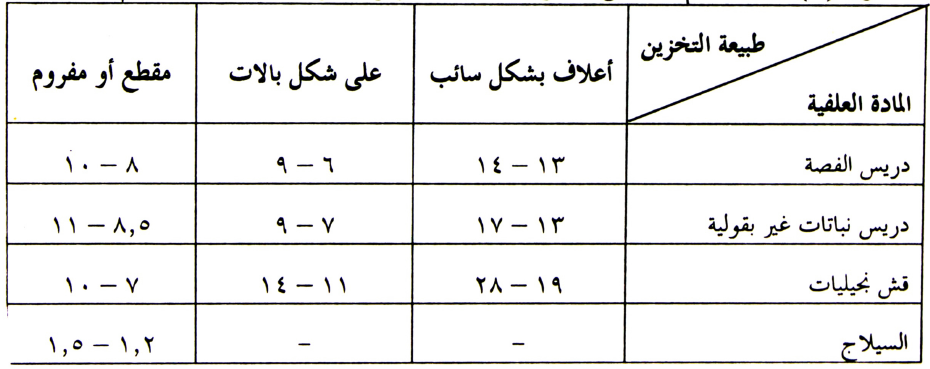 طبيعة التخزين
المادة العلفية
أعلاف بشكل سائب
على شكل بالات
مقطع أو مفروم
دريس الفصة
١٣ – ١٤
٦ – ٩
٨ – ١٠
دريس نباتات غير بقولية
١٣ – ١٧
٧ – ٩
٨,٥ – ١١
قش نجيليات
١٩ – ٢٨
١١ – ١٤
٧ – ١٠
السيلاج
–
–
١,٢ – ١,٥